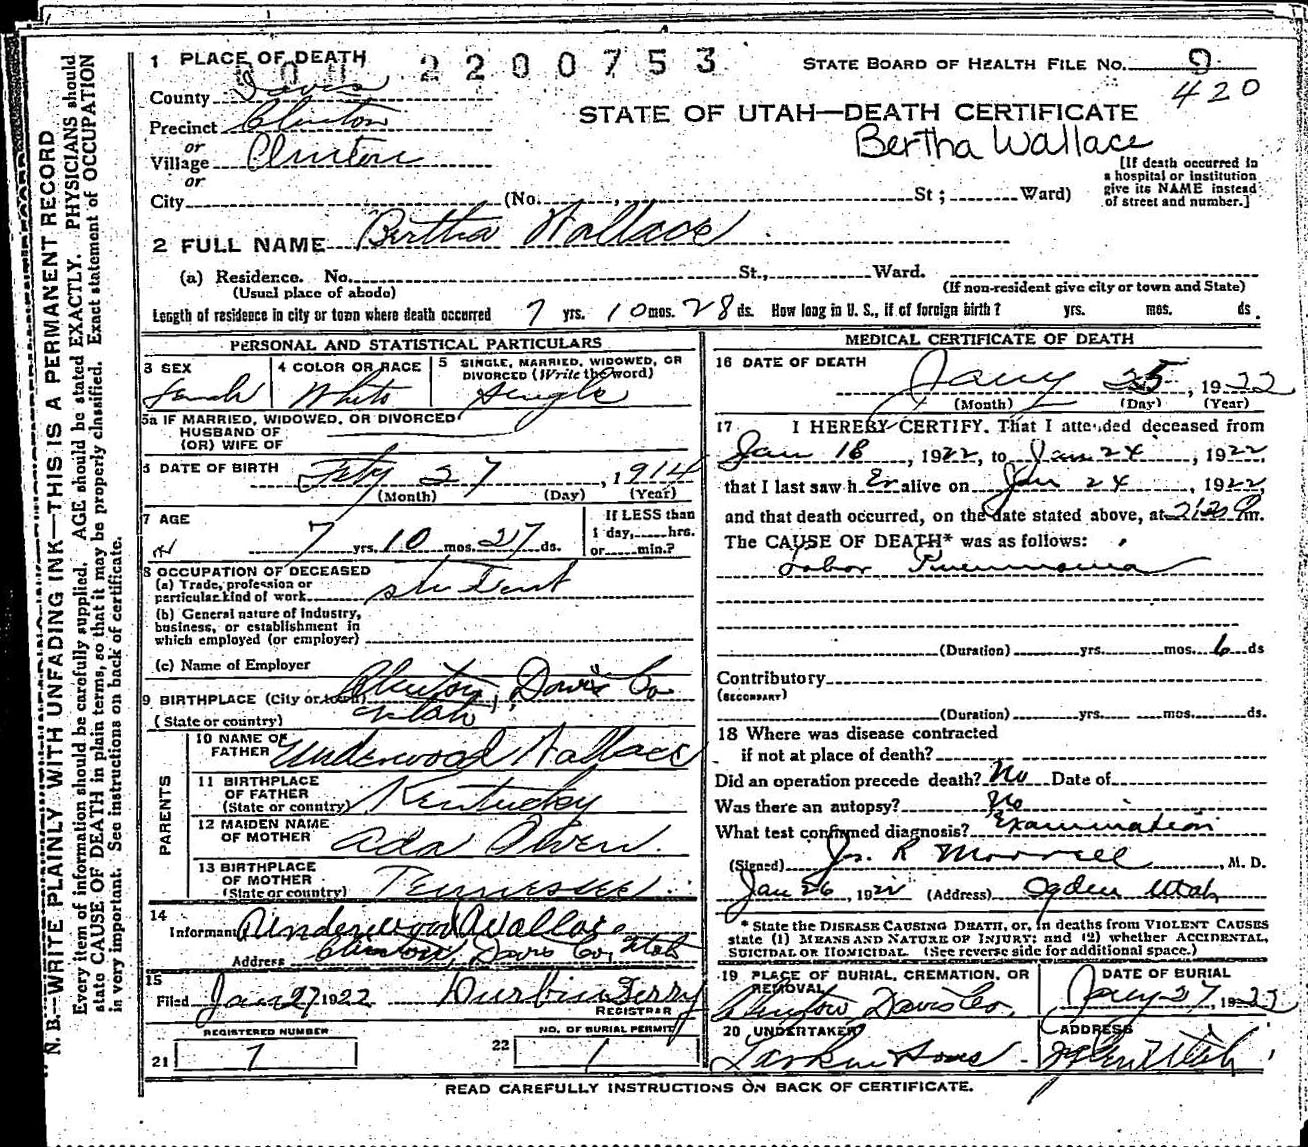 1 PLACE OF DEATH
2200753
STATE BOARD OF HEALTH FILE NO. 9
420
County Davis
STATE OF UTAH—DEATH CERTIFICATE
Precinct Clinton
Bertha Wallace
or
Village Clinton
or
[If death occurred in
a hospital or institution
give its NAME instead
of street and number.]
City (No. , St; Ward)
2 FULL NAME Bertha Wallace
(a) Residence. No. St., Ward.
(Usual place of abode) (If non-resident give city or town and State)
Length of residence in city or town where death occurred 7 yrs. 10 mos. 28 ds. How long in U. S., if of foreign birth? yrs. mos. ds.
PERSONAL AND STATISTICAL PARTICULARS
3 SEX 4 COLOR OR RACE 5 SINGLE, MARRIED, WIDOWED, OR
DIVORCED (Write the word)
Female White Single
5a IF MARRIED, WIDOWED, OR DIVORCED
HUSBAND OF
(OR) WIFE OF
6 DATE OF BIRTH Feby 27, 1914
(Month) (Day) (Year)
7 AGE If LESS than
1 day, hrs.
7 yrs. 10 mos. 27 ds. or min.?
8 OCCUPATION OF DECEASED
(a) Trade, profession or
particular kind of work student
(b) General nature of industry,
business, or establishment in
which employed (or employer)
(c) Name of Employer
9 BIRTHPLACE (City or town) Clinton, Davis Co
Utah
(State or country)
PARENTS
10 NAME OF
FATHER Underwood Wallace
11 BIRTHPLACE
OF FATHER
(State or country) Kentucky
12 MAIDEN NAME
OF MOTHER Ada Owen.
13 BIRTHPLACE
OF MOTHER
(State or country) Tennessee
14
Informant Underwood Wallace
Address Clinton, Davis Co, Utah
15
Filed Jan 27 1922 Durbin Terry
REGISTRAR
REGISTERED NUMBER NO. OF BURIAL PERMIT
21 7 22 1
MEDICAL CERTIFICATE OF DEATH
16 DATE OF DEATH
Jany 25, 1922
(Month) (Day) (Year)
17 I HEREBY CERTIFY, That I attended deceased from
Jan 18, 1922, to Jan 24, 1922,
that I last saw her alive on Jan 24, 1922,
and that death occurred, on the date stated above, at m.
The CAUSE OF DEATH* was as follows:
Lobar Pneumonia
(Duration) yrs. mos. 6 ds
Contributory
(SECONDARY)
(Duration) yrs. mos. ds.
18 Where was disease contracted
if not at place of death?
Did an operation precede death? No Date of
Was there an autopsy? No
What test confirmed diagnosis? Examination
(Signed) Jos. R Morrell, M. D.
Jan 26, 1922 (Address) Ogden Utah
* State the DISEASE CAUSING DEATH, or, in deaths from VIOLENT CAUSES
state (1) MEANS AND NATURE OF INJURY; and (2) whether ACCIDENTAL,
SUICIDAL OR HOMICIDAL. (See reverse side for additional space.)
19 PLACE OF BURIAL, CREMATION, OR
REMOVAL
DATE OF BURIAL
Clinton Davis Co. Jany 27, 1922
20 UNDERTAKER ADDRESS
Larkin & Sons Ogden Utah
READ CAREFULLY INSTRUCTIONS ON BACK OF CERTIFICATE.
N. B.—WRITE PLAINLY WITH UNFADING INK—THIS IS A PERMANENT RECORD
Every item of information should be carefully supplied. AGE should be stated EXACTLY. PHYSICIANS should
state CAUSE OF DEATH in plain terms, so that it may be properly classified. Exact statement of OCCUPATION
is very important. See instructions on back of certificate.